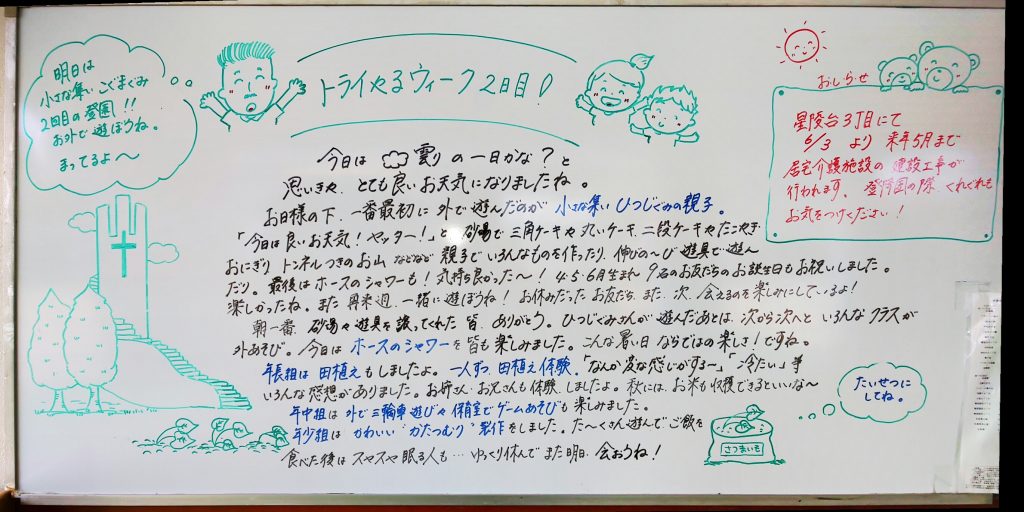 明日は
小さな集い こぐまぐみ
2回目の登園!!
お外で遊ぼうね。
まってるよ〜
トライやるウィーク2日目!
おしらせ
星陵台3丁目にて
6/3 より 来年5月まで
居宅介護施設の建設工事が
行われます。登降園の際、くれぐれも
お気をつけください!
今日は 曇りの一日かな?と
思いきや、とても良いお天気になりましたね。
お日様の下、一番最初に外で遊んだのが 小さな集い ひつじぐみの親子。
「今日は良いお天気!ヤッター!」と 砂場で三角ケーキや丸いケーキ、二段ケーキやたこやき
おにぎり トンネルつきのお山 などなど 親子でいろんなものを作ったり、伸び〜び 遊具で遊ん
だり。最後はホースのシャワーも!気持ち良かった〜! 4・5・6月生まれ 9名のお友だちのお誕生日もお祝いしました。
楽しかったね。また 再来週、一緒に遊ぼうね! お休みだったお友だち、また、次、会えるのを楽しみにしているよ!
朝一番、砂場や遊具を譲ってくれた皆、ありがとう。ひつじぐみさんが遊んだあとは、次から次へと いろんなクラスが
外あそび。今日はホースのシャワーを皆も楽しみました。こんな暑い日ならではの楽しさですね。
年長組は田植えもしましたよ。一人ずつ 田植え体験。「なんか変な感じがする〜」「冷たい」等
いろんな感想がありました。お姉さん・お兄さんも体験しましたよ。秋には、お米も収穫できるといいな〜
年中組は外で三輪車遊びや 保育室でゲームあそびも楽しみました。
年少組は かわいい“かたつむり”製作をしました。た〜くさん遊んでご飯を
食べた後はスヤスヤ眠る人も… ゆっくり休んでまた明日、会おうね!
たいせつに
してね。
さつまいも